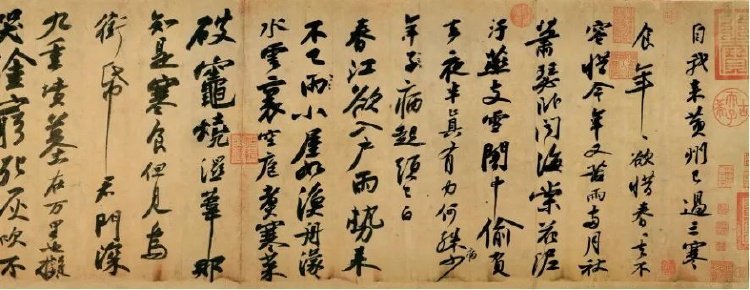 自我来黃州已過三寒
食年〻欲惜春〻去不
容惜今年又苦雨兩月秋
蕭瑟臥聞海棠花泥
汙燕支雪闇中偷負
去夜半真有力何殊病少
年子病起頭已白
春江欲入戶雨勢来
不已雨小屋如漁舟濛〻
水雲裏空庖煮寒菜
破竈燒濕葦那
知是寒食但見烏
銜帋君門深
九重墳墓在万里也擬
哭塗窮死灰吹不